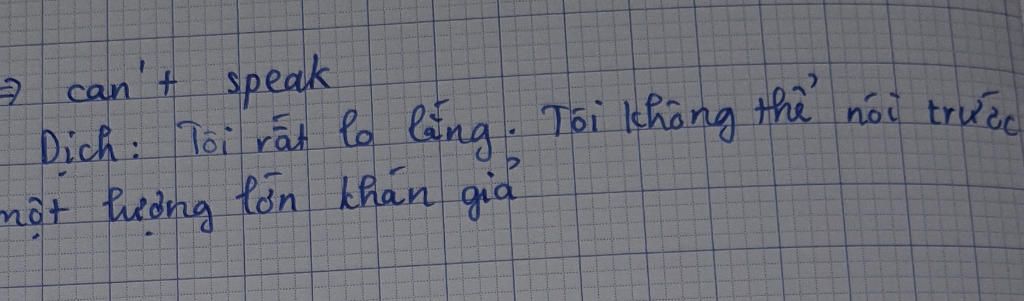 ⇒ can't speak
Dịch: Tôi rất lo lắng. Tôi không thể nói trước
một lượng lớn khán giả